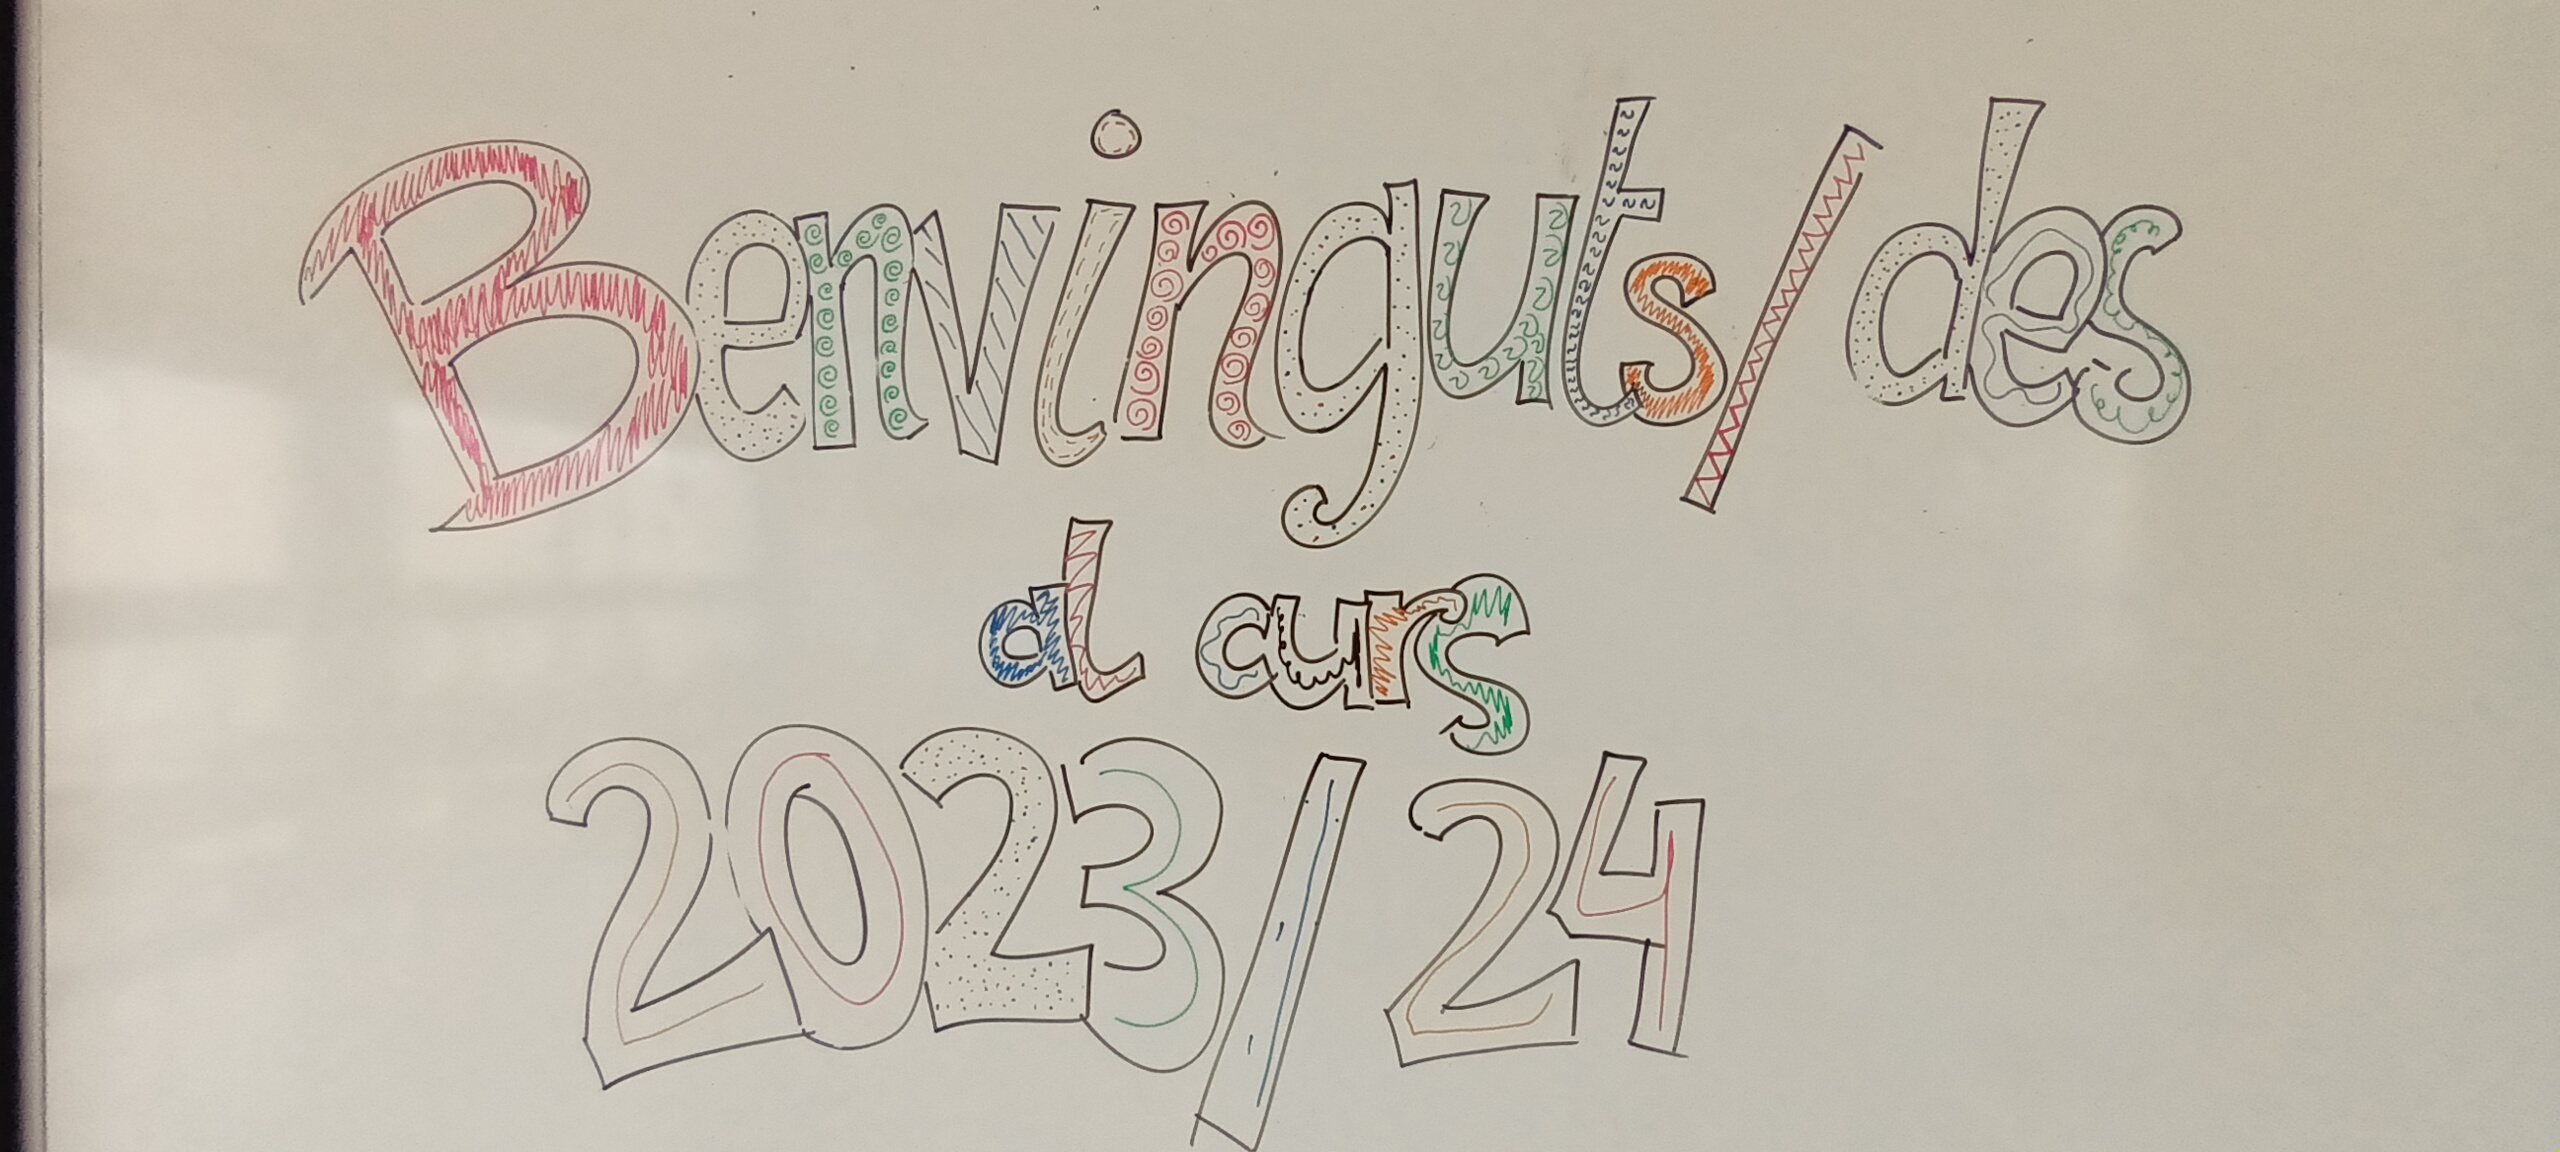 Benvinguts/des
al curs
2023/24